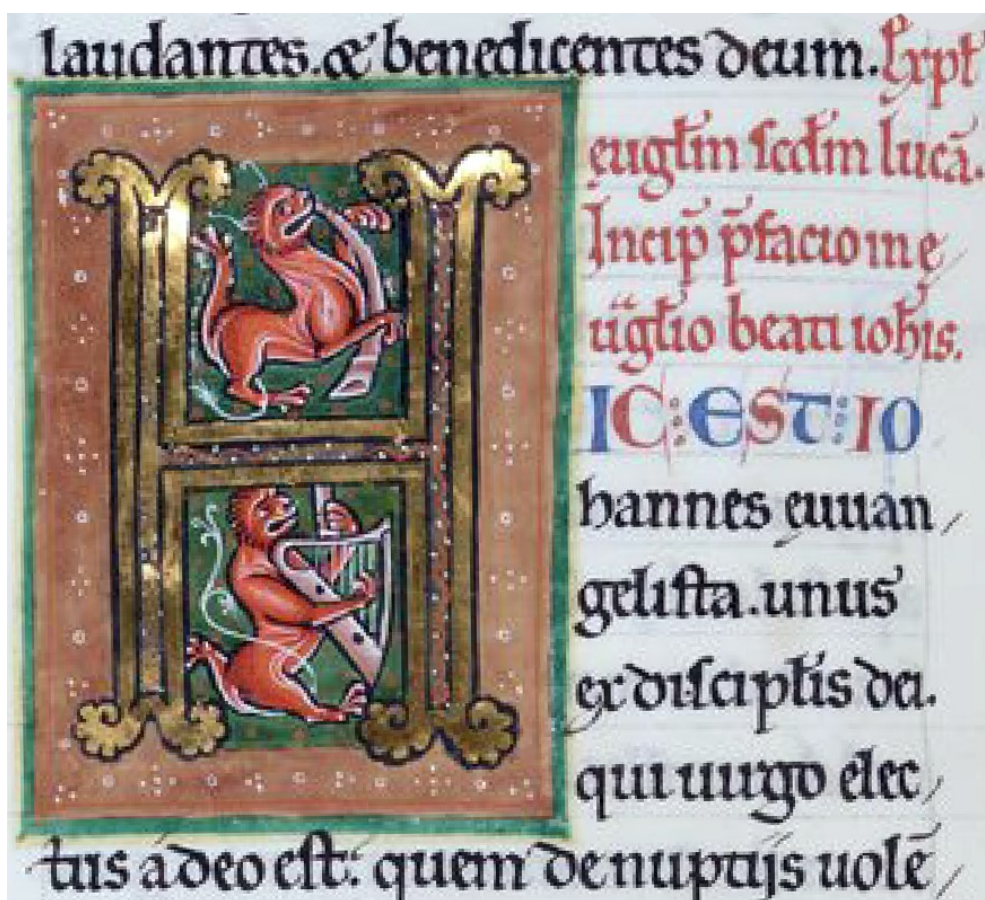 laudantes. & benedicentes deum. Expt̄
eugłm scd̄m lucā.
Incip̄ p̄facio in e
uḡłio beati ioh̄is.
HIC: EST: IO
hannes euuan
gelista. unus
ex discipłis dei.
qui uirgo elec
tus a deo est: quem de nuptijs uolē